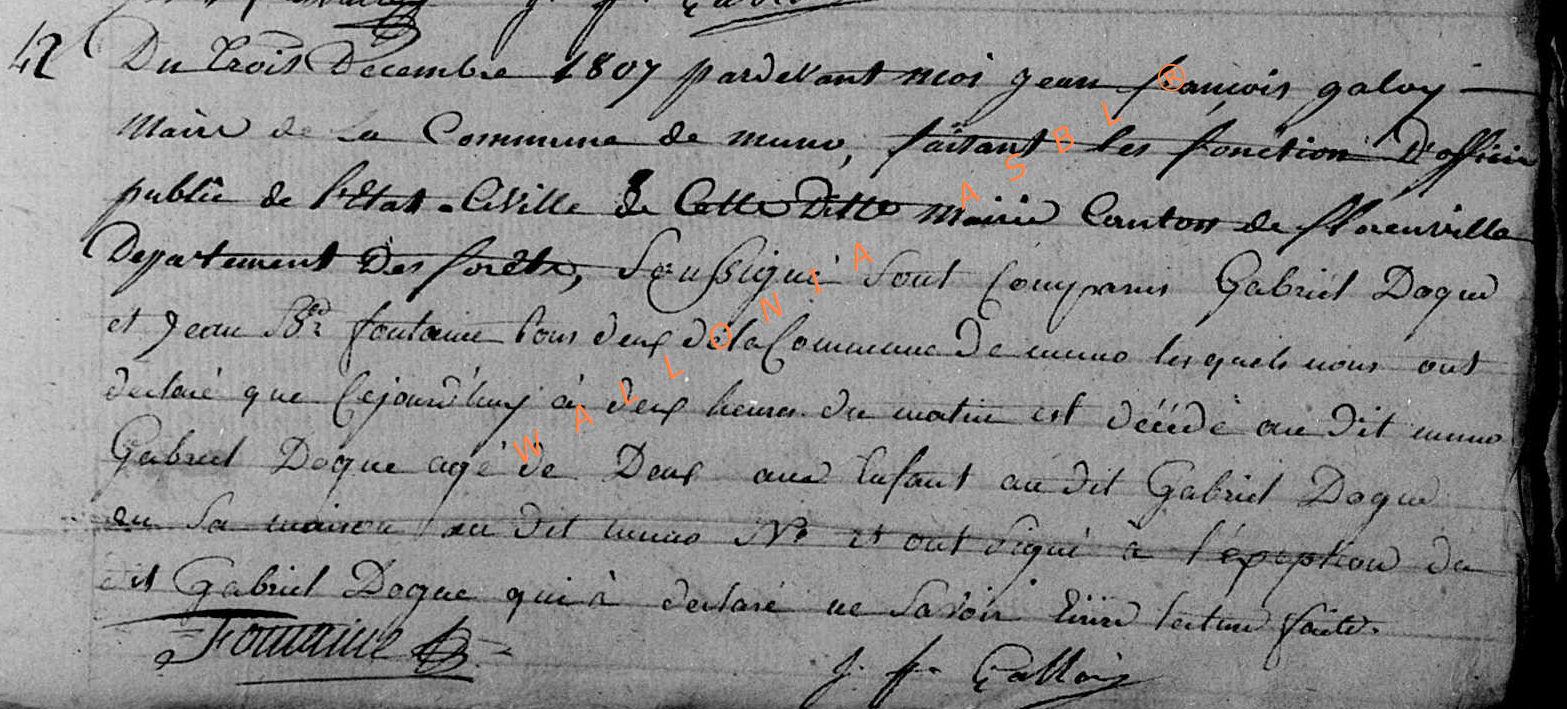 42
Du trois Decembre 1807 pardevant moi jean françois galoy
Maire de La Commune de muno, faisant les fonction D'officier
public de l'Etat-Civille de Cette Ditte Mairie Canton de florenville
Departement Des forêts, Soussigné Sont Comparus Gabriel Doque
et jean fontaine tous deux de la Commune de muno lesquels nous ont
declaré que Cejourd'huy à deux heures du matin est décédé au dit muno
Gabriel Doque agé de Deux ans Enfant au dit Gabriel Doque
en Sa maison au dit muno N° et ont signé a l'éxeption du
dit Gabriel Doque qui à declaré ne Savoir Ecrire lecture faite.
Fontaine
j. f. Galloy
WALLONIA ASBL ®